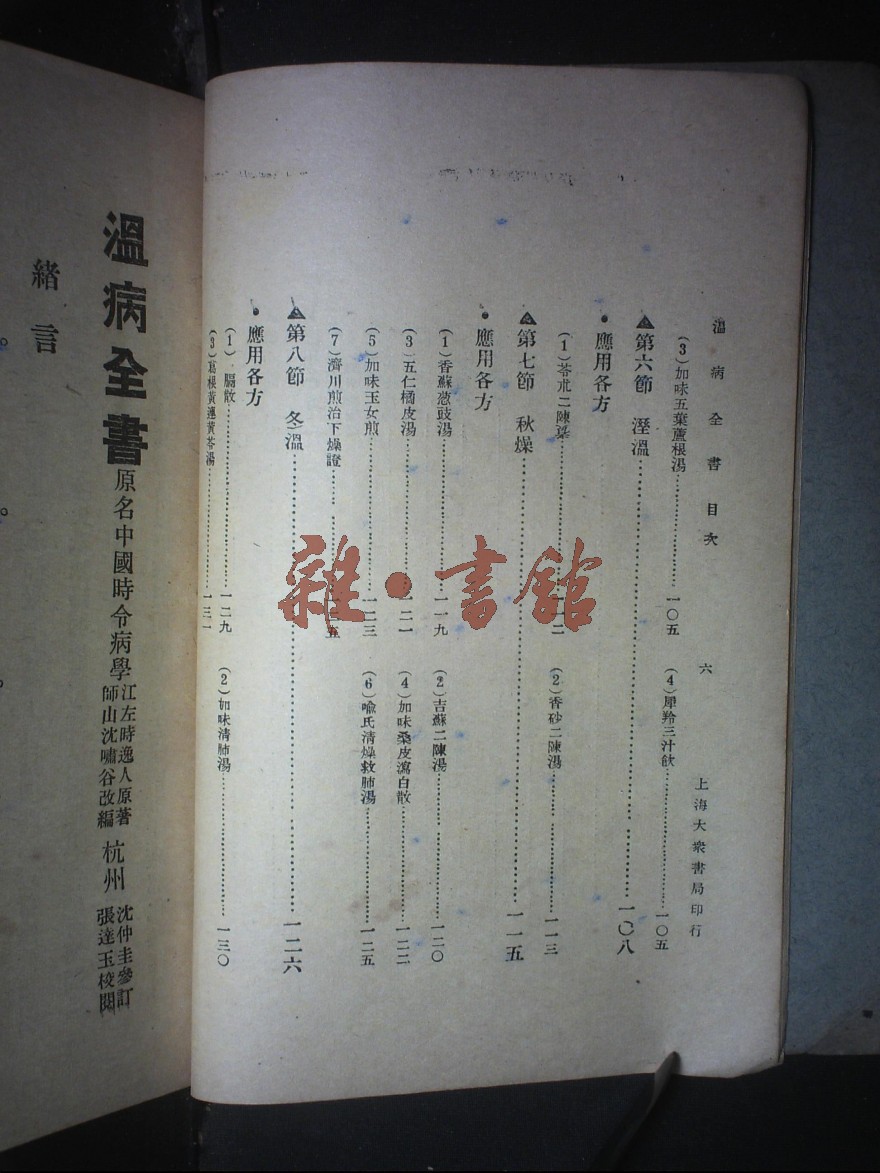 溫病全書目次　六　上海大衆書局印行
(3)加味五葉蘆根湯……一〇五　(4)犀羚三汁飲……一〇五
第六節　溼溫……一〇八
應用各方
(1)苓朮二陳　(2)香砂二陳湯……一一三
第七節　秋燥……一一五
應用各方
(1)香蘇葱豉湯……一一九　(2)吉蘇二陳湯……一二〇
(3)五仁橘皮湯……一二一　(4)加味桑皮瀉白散……一二二
(5)加味玉女煎……一二三　(6)喻氏清燥救肺湯……一二五
(7)濟川煎治下燥證……五
第八節　冬溫……一二六
應用各方
(1)膈散……一二九　(2)加味清肺湯……一三〇
(3)葛根黃連黃芩湯……一三一
溫病全書　原名中國時令病學　江左時逸人原著　師山沈嘯谷改編　杭州　沈仲圭參訂　張達玉校閱
緒言
雜·書館